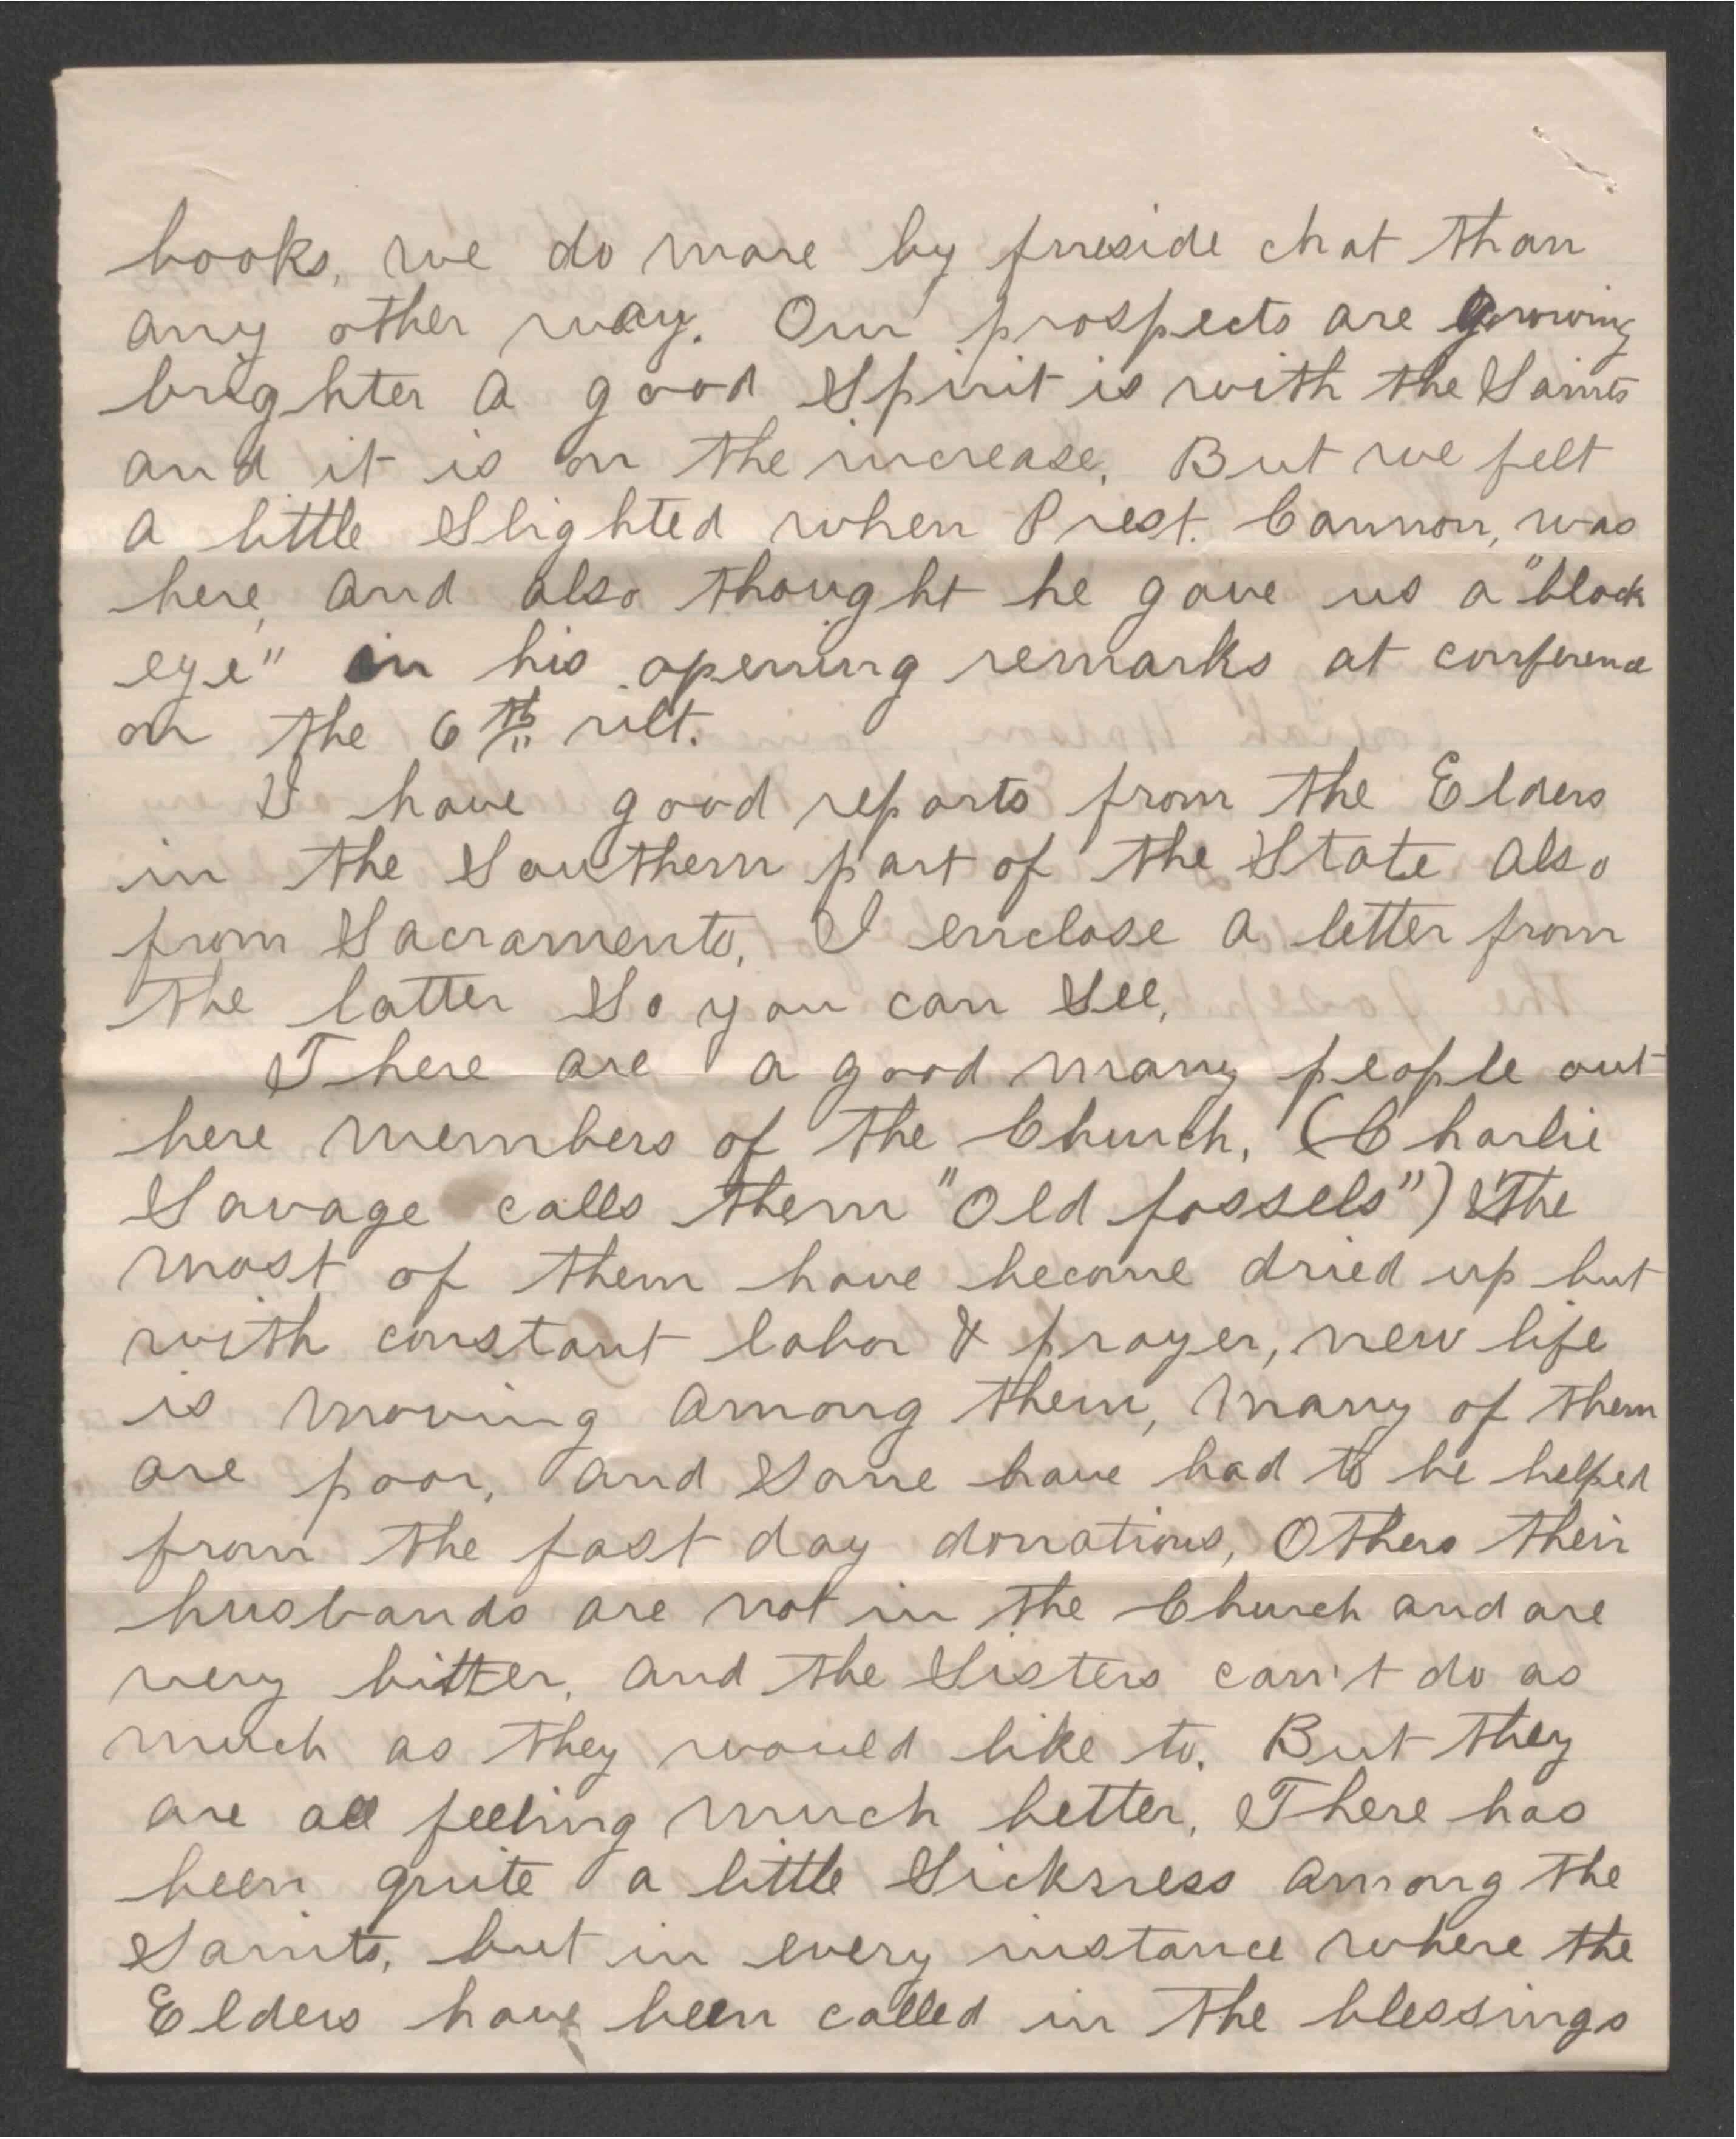 books, we do more by fireside chat than
any other way. Our prospects are growing
brighter a good Spirit is with the Saints
and it is on the increase, But we felt
a little Slighted when Prest. Cannon, was
here, and also thought he gave us a "black
eye" in his opening remarks at conference
on the 6th ult.
I have good reports from the Elders
in the Southern part of the State also
from Sacramento, I enclose a letter from
the latter So you can See,
There are a good many people out
here members of the Church, (Charlie
Savage calls them "Old fossels") The
most of them have become dried up but
with constant labor & prayer, new life
is moving among them, Many of them
are poor, and Some have had to be helped
from the fast day donations, Others their
husbands are not in the Church and are
very bitter, and the Sisters can't do as
much as they would like to. But they
are all feeling much better, There has
been quite a little Sickness among the
Saints, but in every instance where the
Elders have been called in the blessings